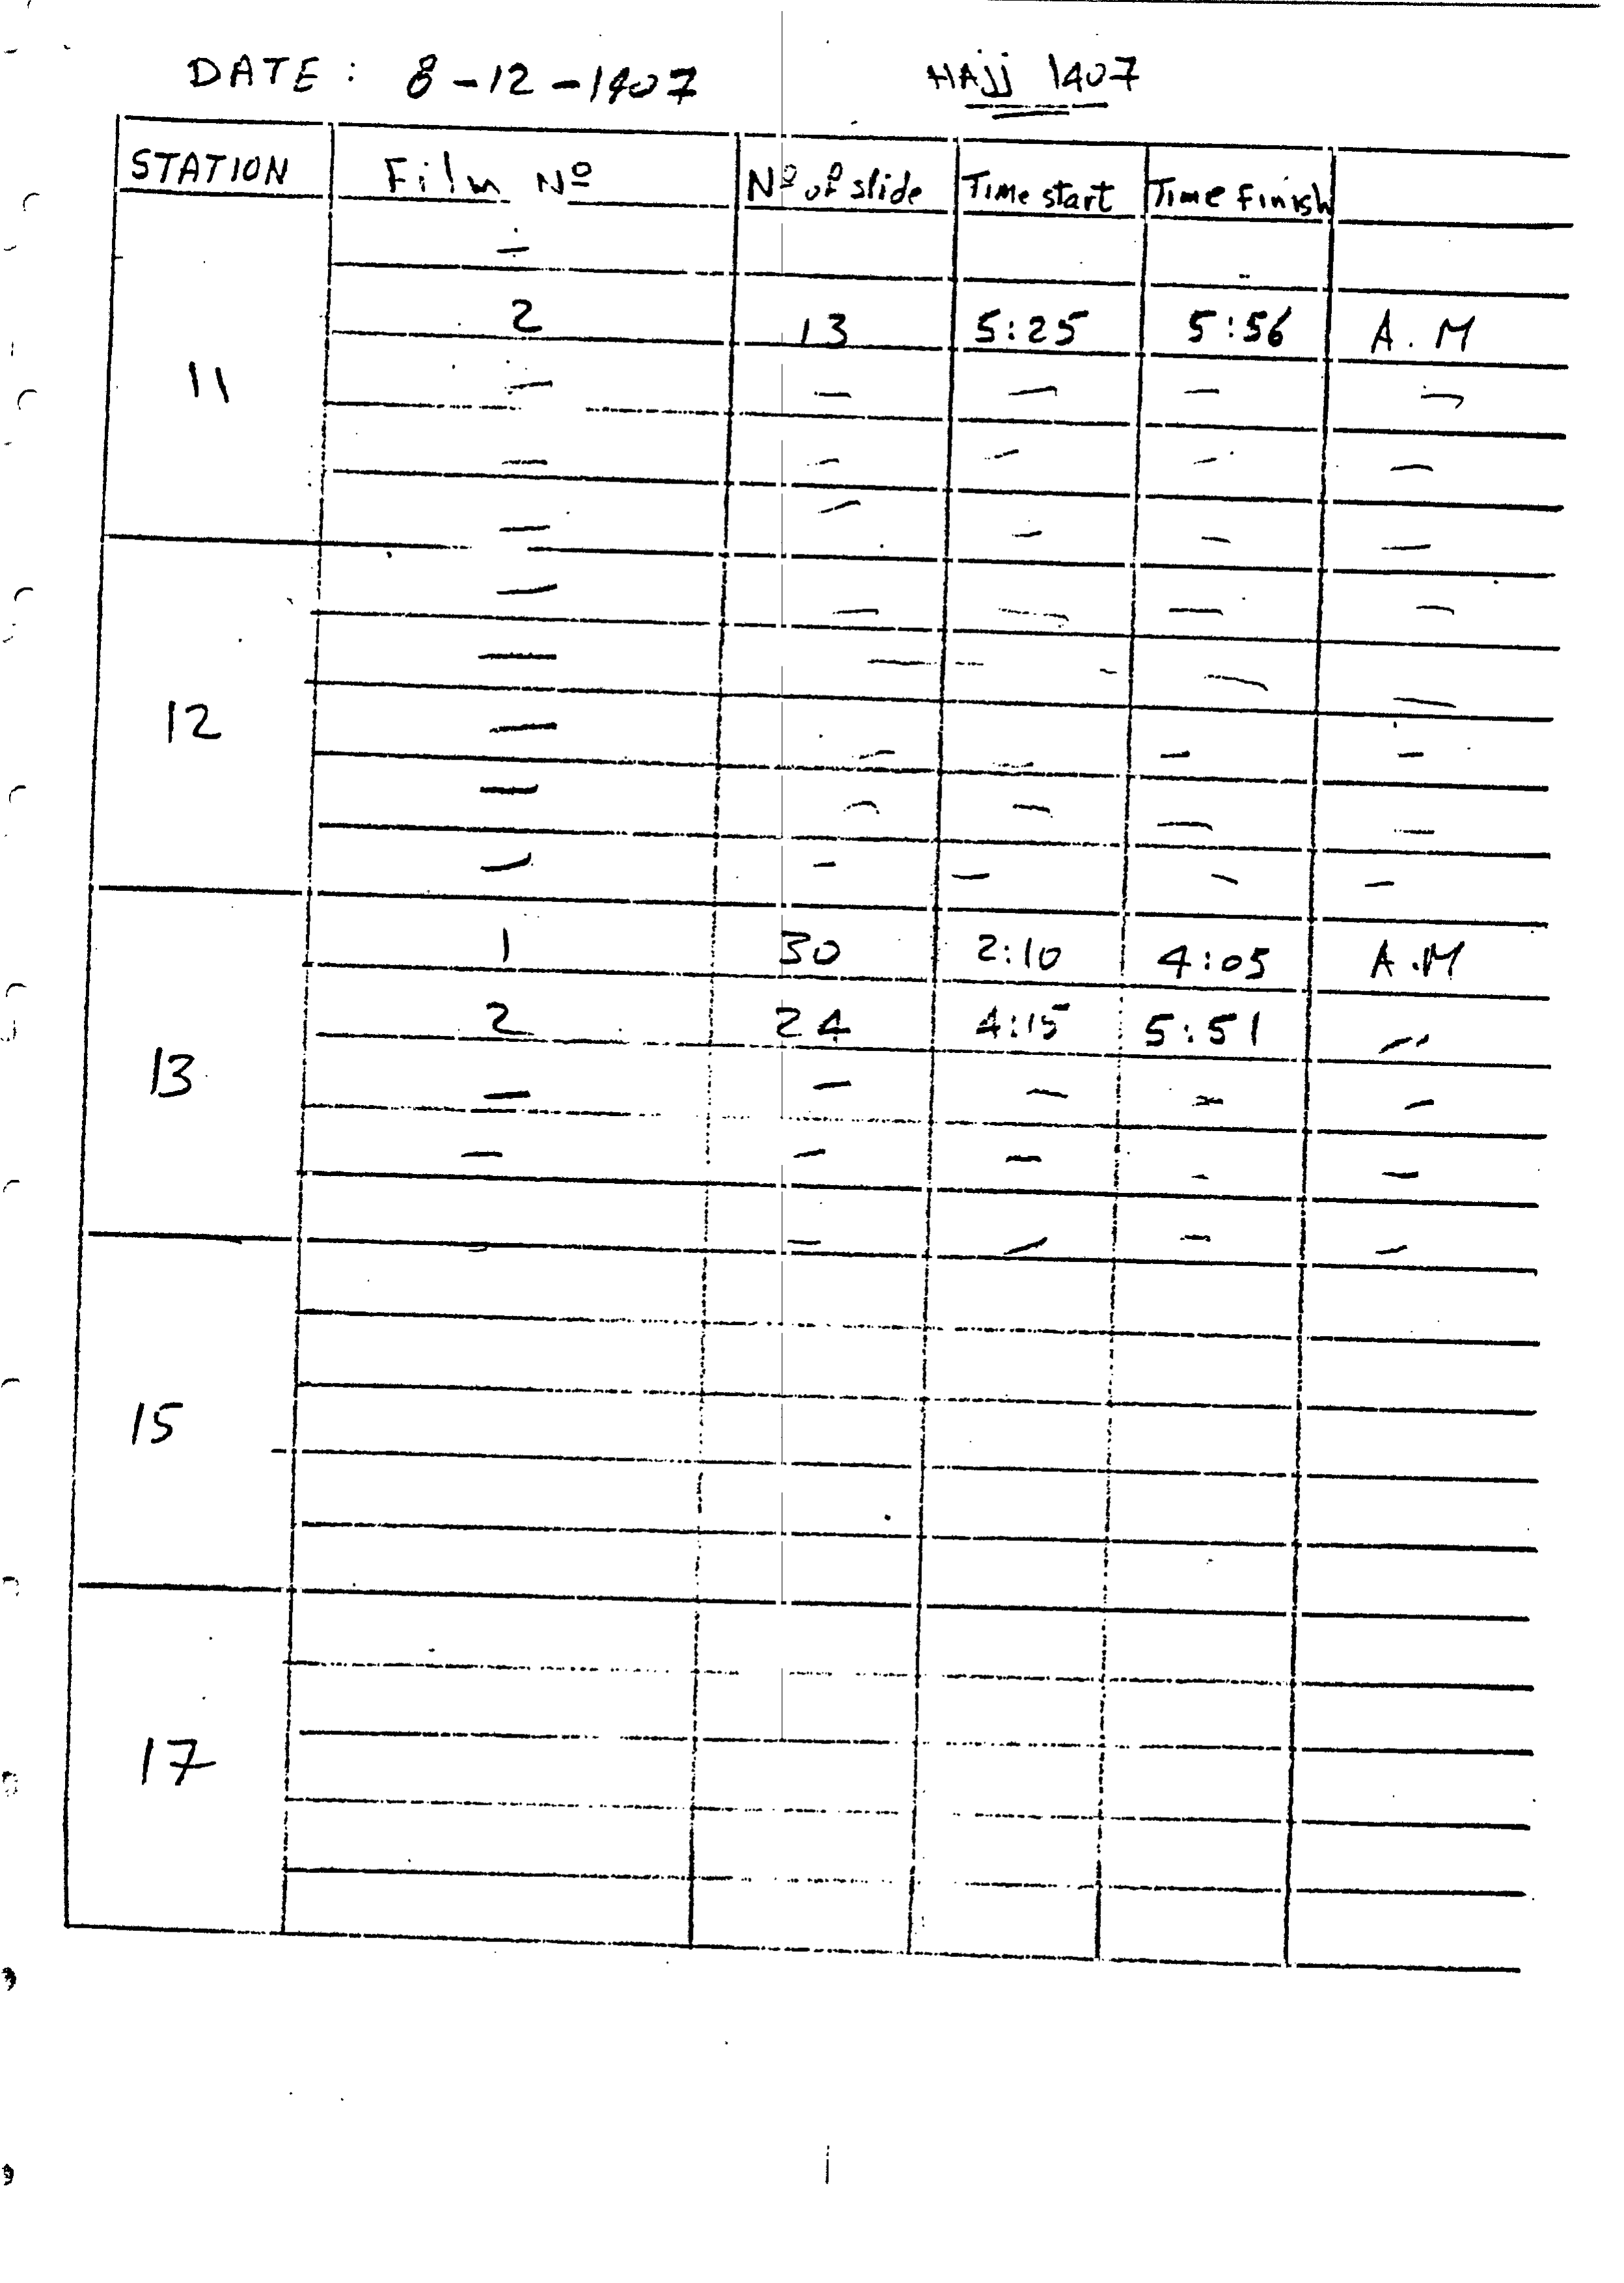 DATE : 8-12-1407 HAjj 1407
STATION Film Nº Nº of slide Time start Time Finish
—
2 13 5:25 5:56 A.M
11 — — — — —
— — — — —
— — — — —
— — — — —
— — — — —
12 — — — — —
— — — — —
— — — — —
1 30 2:10 4:05 A.M
2 24 4:15 5:51 〃
13 — — — — —
— — — — —
— — — — —
15
17